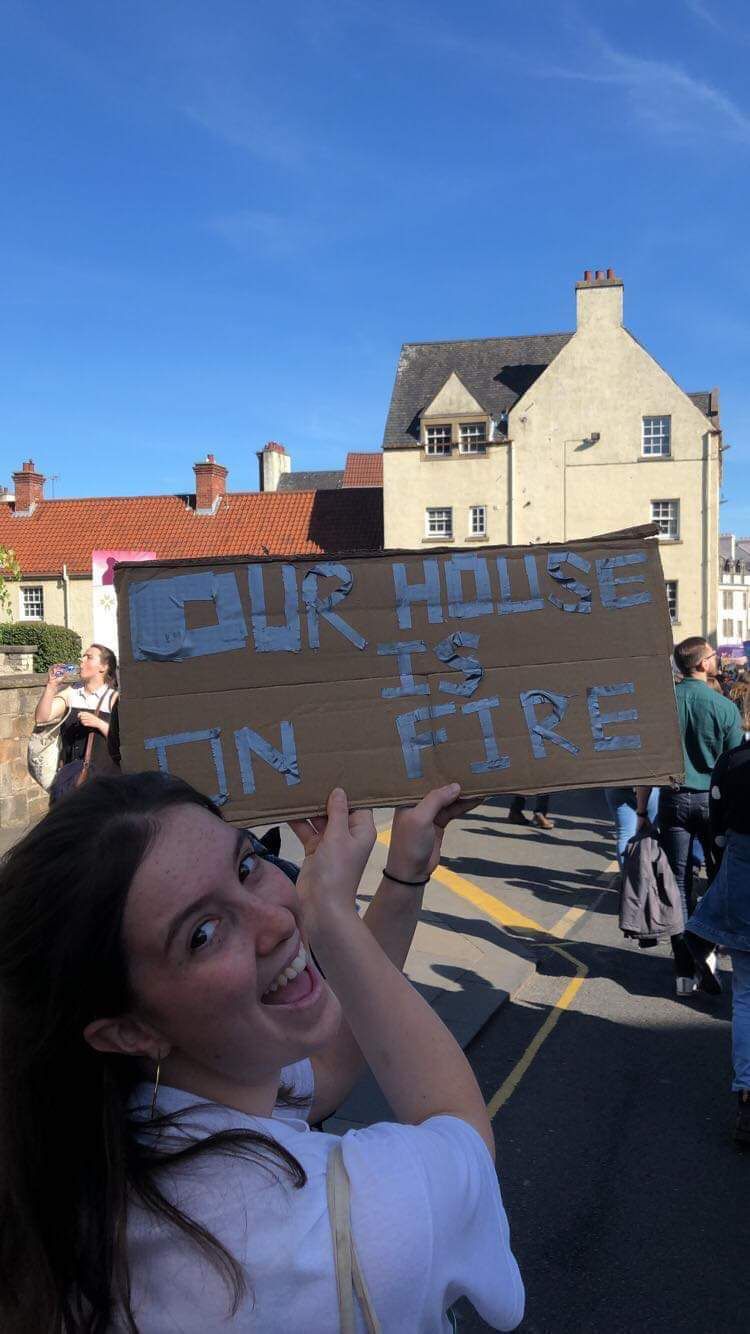 OUR HOUSE
IS
ON FIRE